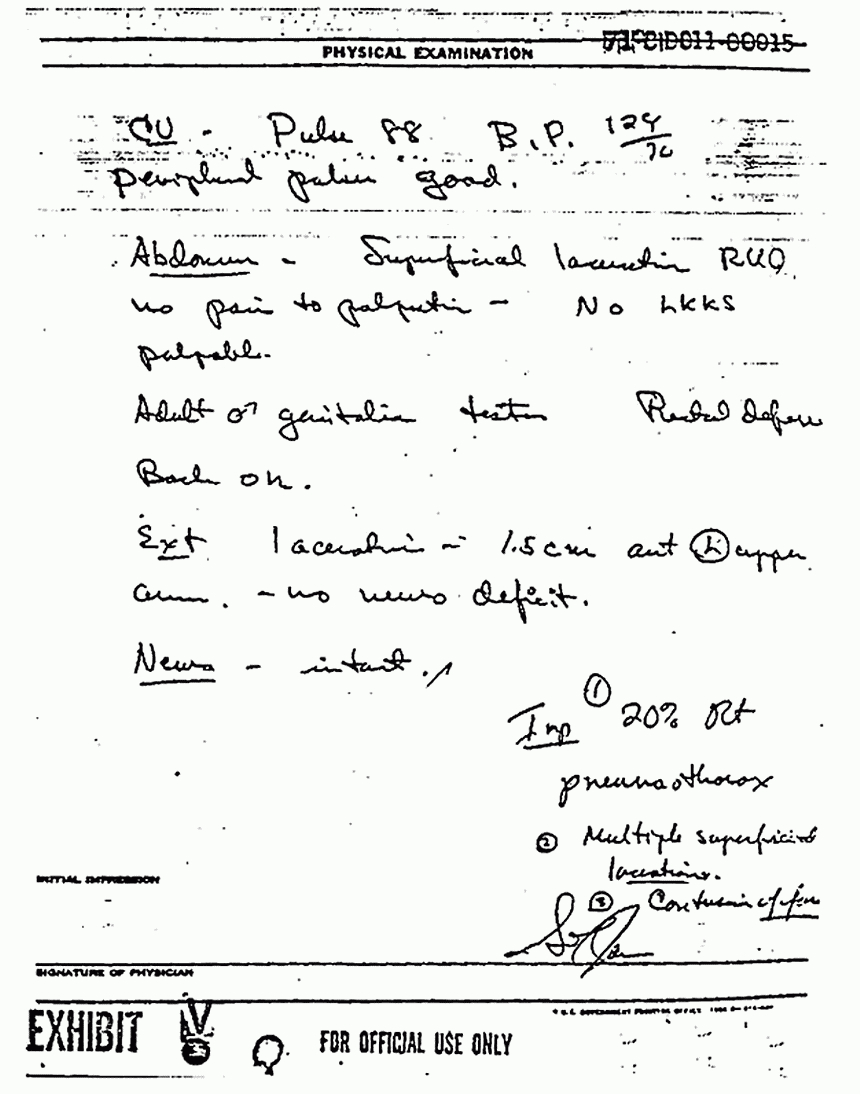 PHYSICAL EXAMINATION
CV - Pulse 88 B.P. 124/70
peripheral pulses good.
Abdomen - Superficial laceration RUQ
no pain to palpation - No LKKS
palpable.
Adult ♂ genitalia testes Rectal defer
Back OK.
Ext laceration - 1.5 cm ant Ⓛ upper
arm. - no neuro deficit.
Neuro - intact.
Imp ① 20% Rt
pneumothorax
② Multiple superficial
lacerations.
③ Contusion of
INITIAL IMPRESSION
SIGNATURE OF PHYSICIAN
EXHIBIT
FOR OFFICIAL USE ONLY